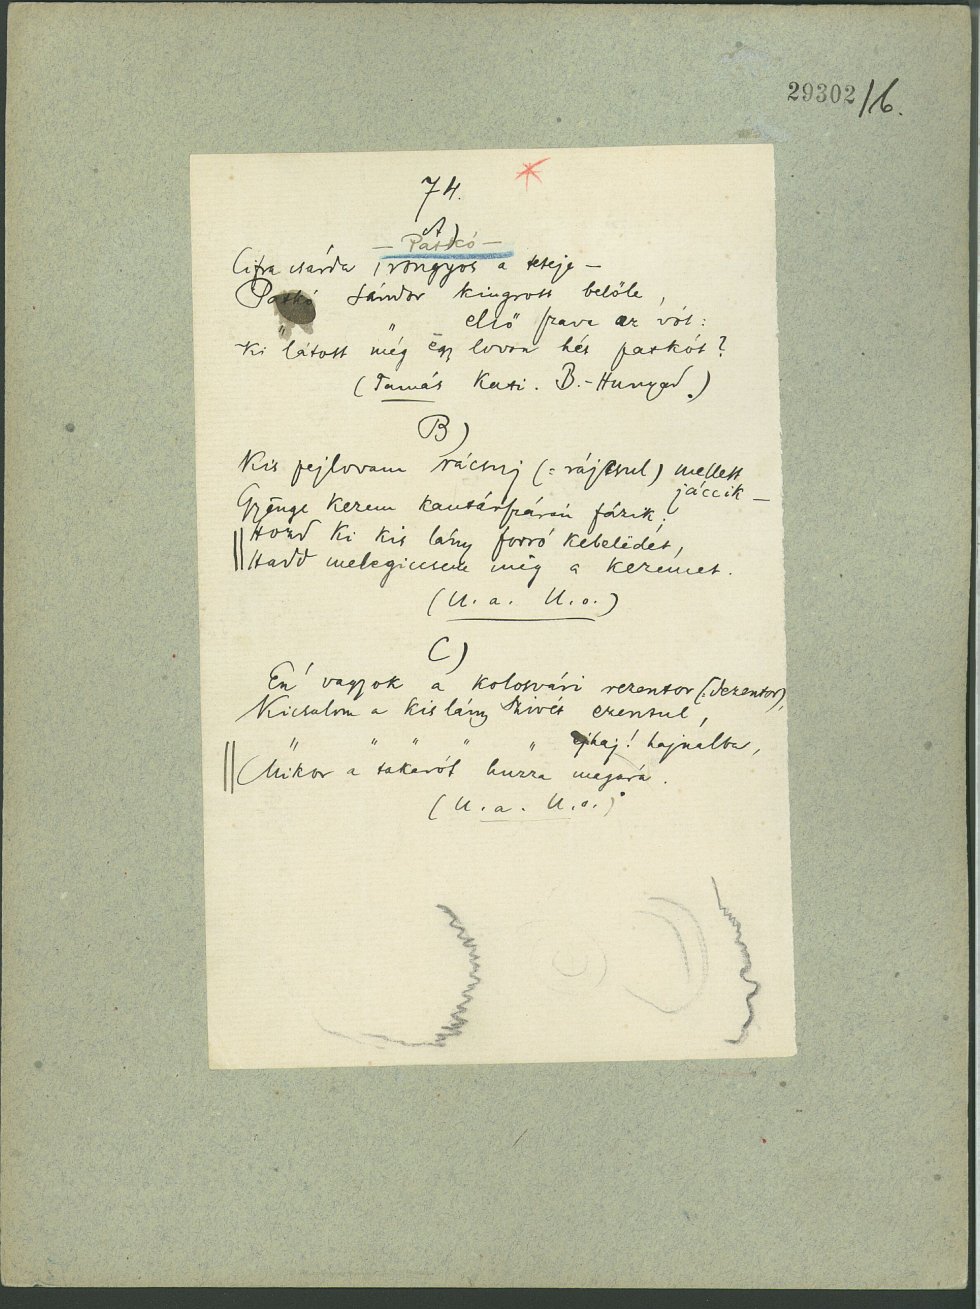 29302/16.
74.
A)
– Patkó –
Cifra csárda, rongyos a teteje –
Patkó Sándor kiugrott belőle,
" " első szava az vót:
Ki látott még ëgy lovon hét patkót?
(Tamás Kati. B.-Hunyad.)
B)
Kis pejlovam rácsuj (: rájcsul) mellett
jáccik –
Gyënge kezem kantárszárán fázik;
Hozd ki kis lány forró kebeledët,
Hadd melegiccsem mëg a kezemet.
(U. a. U. o.)
C)
Én vagyok a kolosvári rezentor (: dezentor),
Kicsalom a kis lány szivét ezentul,
" " " " " ejhaj! hajnalba,
Mikor a takarót huzza magára.
(U. a. U. o.)